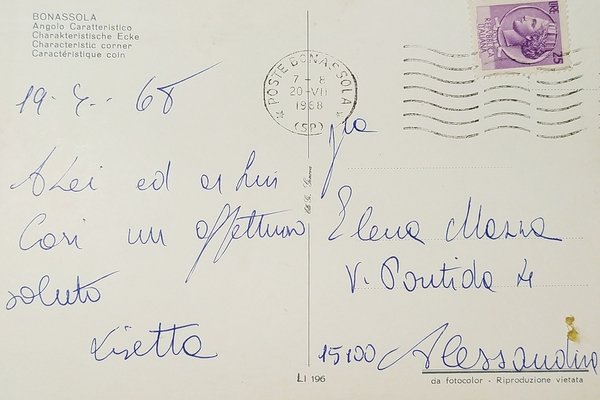 BONASSOLA
Angolo Caratteristico
Charakteristische Ecke
Characteristic corner
Caractéristique coin
19.7.68
A Lei ed ai Lui
Cari un affettuoso
saluto
Lisetta
POSTE BONASSOLA
7-8
20-VII
1968
(SP)
REPUBBLICA ITALIANA
LIRE 25
Elena Mazza
V. Pontida 4
15100 Alessandria
LI 196
da fotocolor - Riproduzione vietata